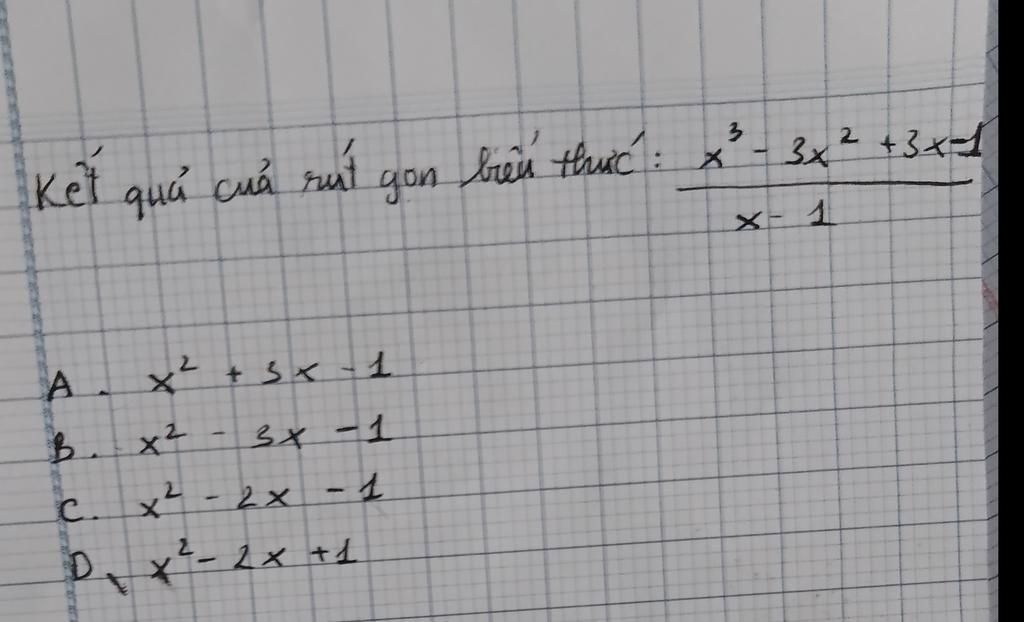 Kết quả cuả rút gọn biểu thức: x³ - 3x² + 3x - 1
x - 1
A. x² + 3x - 1
B. x² - 3x - 1
C. x² - 2x - 1
D. x² - 2x + 1